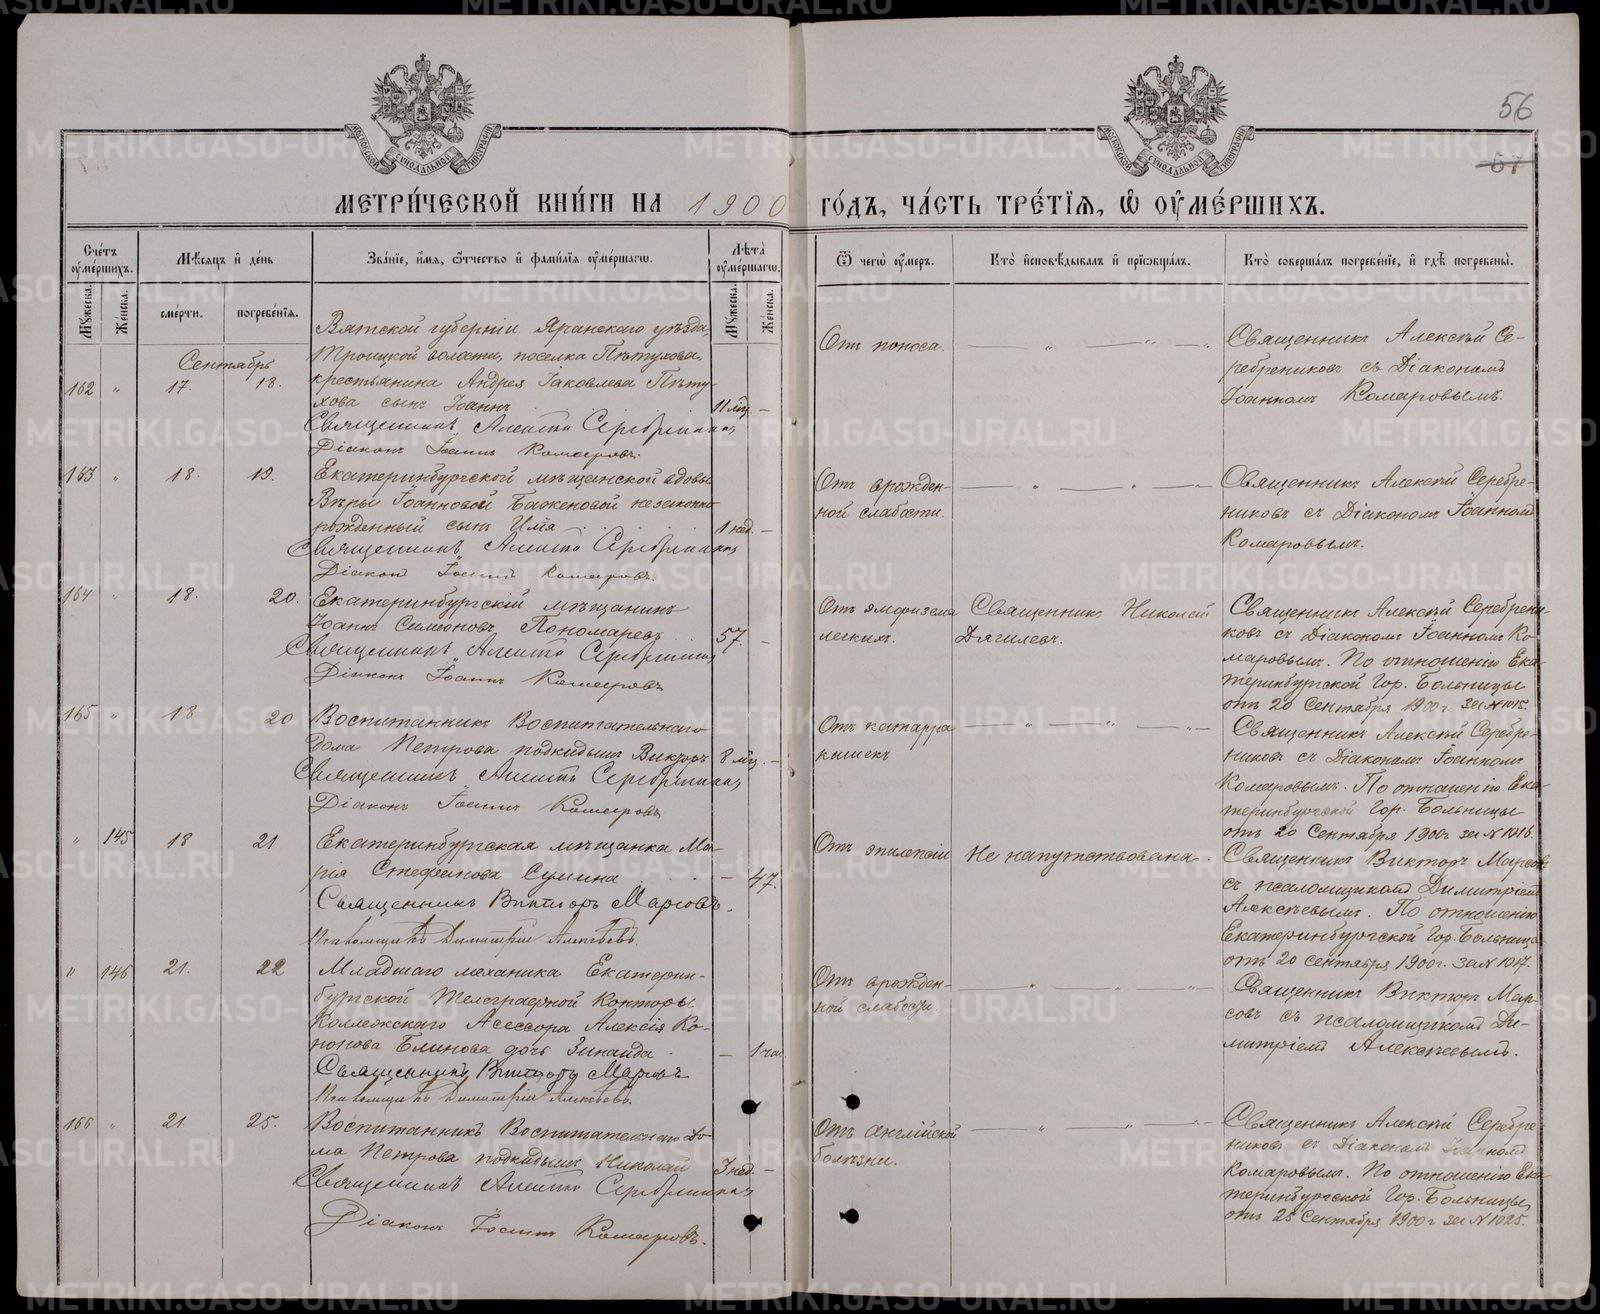 56
57
МЕТРИ́ЧЕСКОЙ КНИ́ГИ НА 1900 ГО́ДЪ, ЧА́СТЬ ТРЕ́ТІѦ, Ѡ ОУМЕ́РШИХЪ.
Сче́тъ оуме́ршихъ.
Му́жеска.
Же́нска.
Мѣ́сяцъ и де́нь
сме́рти.
погребе́нія.
Зва́ніе, и́мя, ѻ́тчество и фами́лія оуме́ршагѡ.
Лѣ́та оуме́ршагѡ.
Му́жеска.
Же́нска.
Ѿ чегѡ̀ оу́меръ.
Кто̀ и́сповѣ́дывалъ и прїѡбща́лъ.
Кто̀ соверша́лъ погребе́ніе, и гдѣ̀ погребены̀.
Сентябрь
162 " 17. 18.
Вятской губерніи Яранскаго уѣзда,
Троицкой волости, поселка Пѣтухова
крестьянина Андрея Іаковлева Пѣту-
хова сынъ Іоаннъ 11 мц. —
Священникъ Алексій Серебренниковъ
Діаконъ Іоаннъ Комаровъ.
Отъ поноса.
Священникъ Алексѣй Се-
ребрениковъ съ Діакономъ
Іоанномъ Комаровымъ.
163 " 18. 19.
Екатеринбургской мѣщанской вдовы
Вѣры Іоанновой Баженовой незаконно-
рожденный сынъ Илія 1 нед. —
Священникъ Алексій Серебренниковъ
Діаконъ Іоаннъ Комаровъ.
Отъ врожден-
ной слабости.
Священникъ Алексѣй Серебре-
никовъ съ Діакономъ Іоанномъ
Комаровымъ.
164 " 18. 20.
Екатеринбургскій мѣщанинъ
Іоаннъ Симеоновъ Пономаревъ 57. —
Священникъ Алексій Серебренниковъ
Діаконъ Іоаннъ Комаровъ
Отъ эмфизема
легкихъ.
Священникъ Николай
Дягилевъ.
Священникъ Алексѣй Серебрени-
ковъ съ Діакономъ Іоанномъ Ко-
маровымъ. По отношенію Ека-
теринбургской Гор. Больницы
отъ 20 Сентября 1900 г. за N 1015.
165 " 18 20
Воспитанникъ Воспитательнаго
дома Петрова подкидышъ Викторъ 8 мц. —
Священникъ Алексій Серебренниковъ
Діаконъ Іоаннъ Комаровъ
Отъ катарра
кишекъ
Священникъ Алексѣй Серебре-
никовъ съ Діакономъ Іоанномъ
Комаровымъ. По отношенію Ека-
теринбургской Гор. Больницы
отъ 20 Сентября 1900 г. за N 1016.
" 145 18 21
Екатеринбургская мѣщанка Ма-
рія Стефанова Сумина — 47.
Священникъ Викторъ Марсовъ.
Псаломщикъ Димитрій Алексѣевъ.
Отъ эпилепсіи
Не напутствована.
Священникъ Викторъ Марсовъ
съ псаломщикомъ Димитріемъ
Алексѣевымъ. По отношенію
Екатеринбургской Гор. Больницы
отъ 20 Сентября 1900 г. за N 1017.
" 146 21. 22
Младшаго механика Екатерин-
бургской Телеграфной Конторы
Коллежскаго Асессора Алексія Ко-
нонова Блинова дочь Зинаида — 1 час.
Священникъ Викторъ Марсовъ
Псаломщикъ Димитрій Алексѣевъ.
Отъ врожден-
ной слабости.
Священникъ Викторъ Мар-
совъ съ псаломщикомъ Ди-
митріемъ Алексѣевымъ.
166 " 21. 25.
Воспитанникъ Воспитательнаго до-
ма Петрова подкидышъ Николай 3 нед. —
Священникъ Алексій Серебренниковъ
Діаконъ Іоаннъ Комаровъ.
Отъ англійской
болѣзни.
Священникъ Алексѣй Серебре-
никовъ съ Діакономъ Іоанномъ
Комаровымъ. По отношенію Ека-
теринбургской Гор. Больницы
отъ 25 Сентября 1900 г. за N 1025.
METRIKI.GASO-URAL.RU